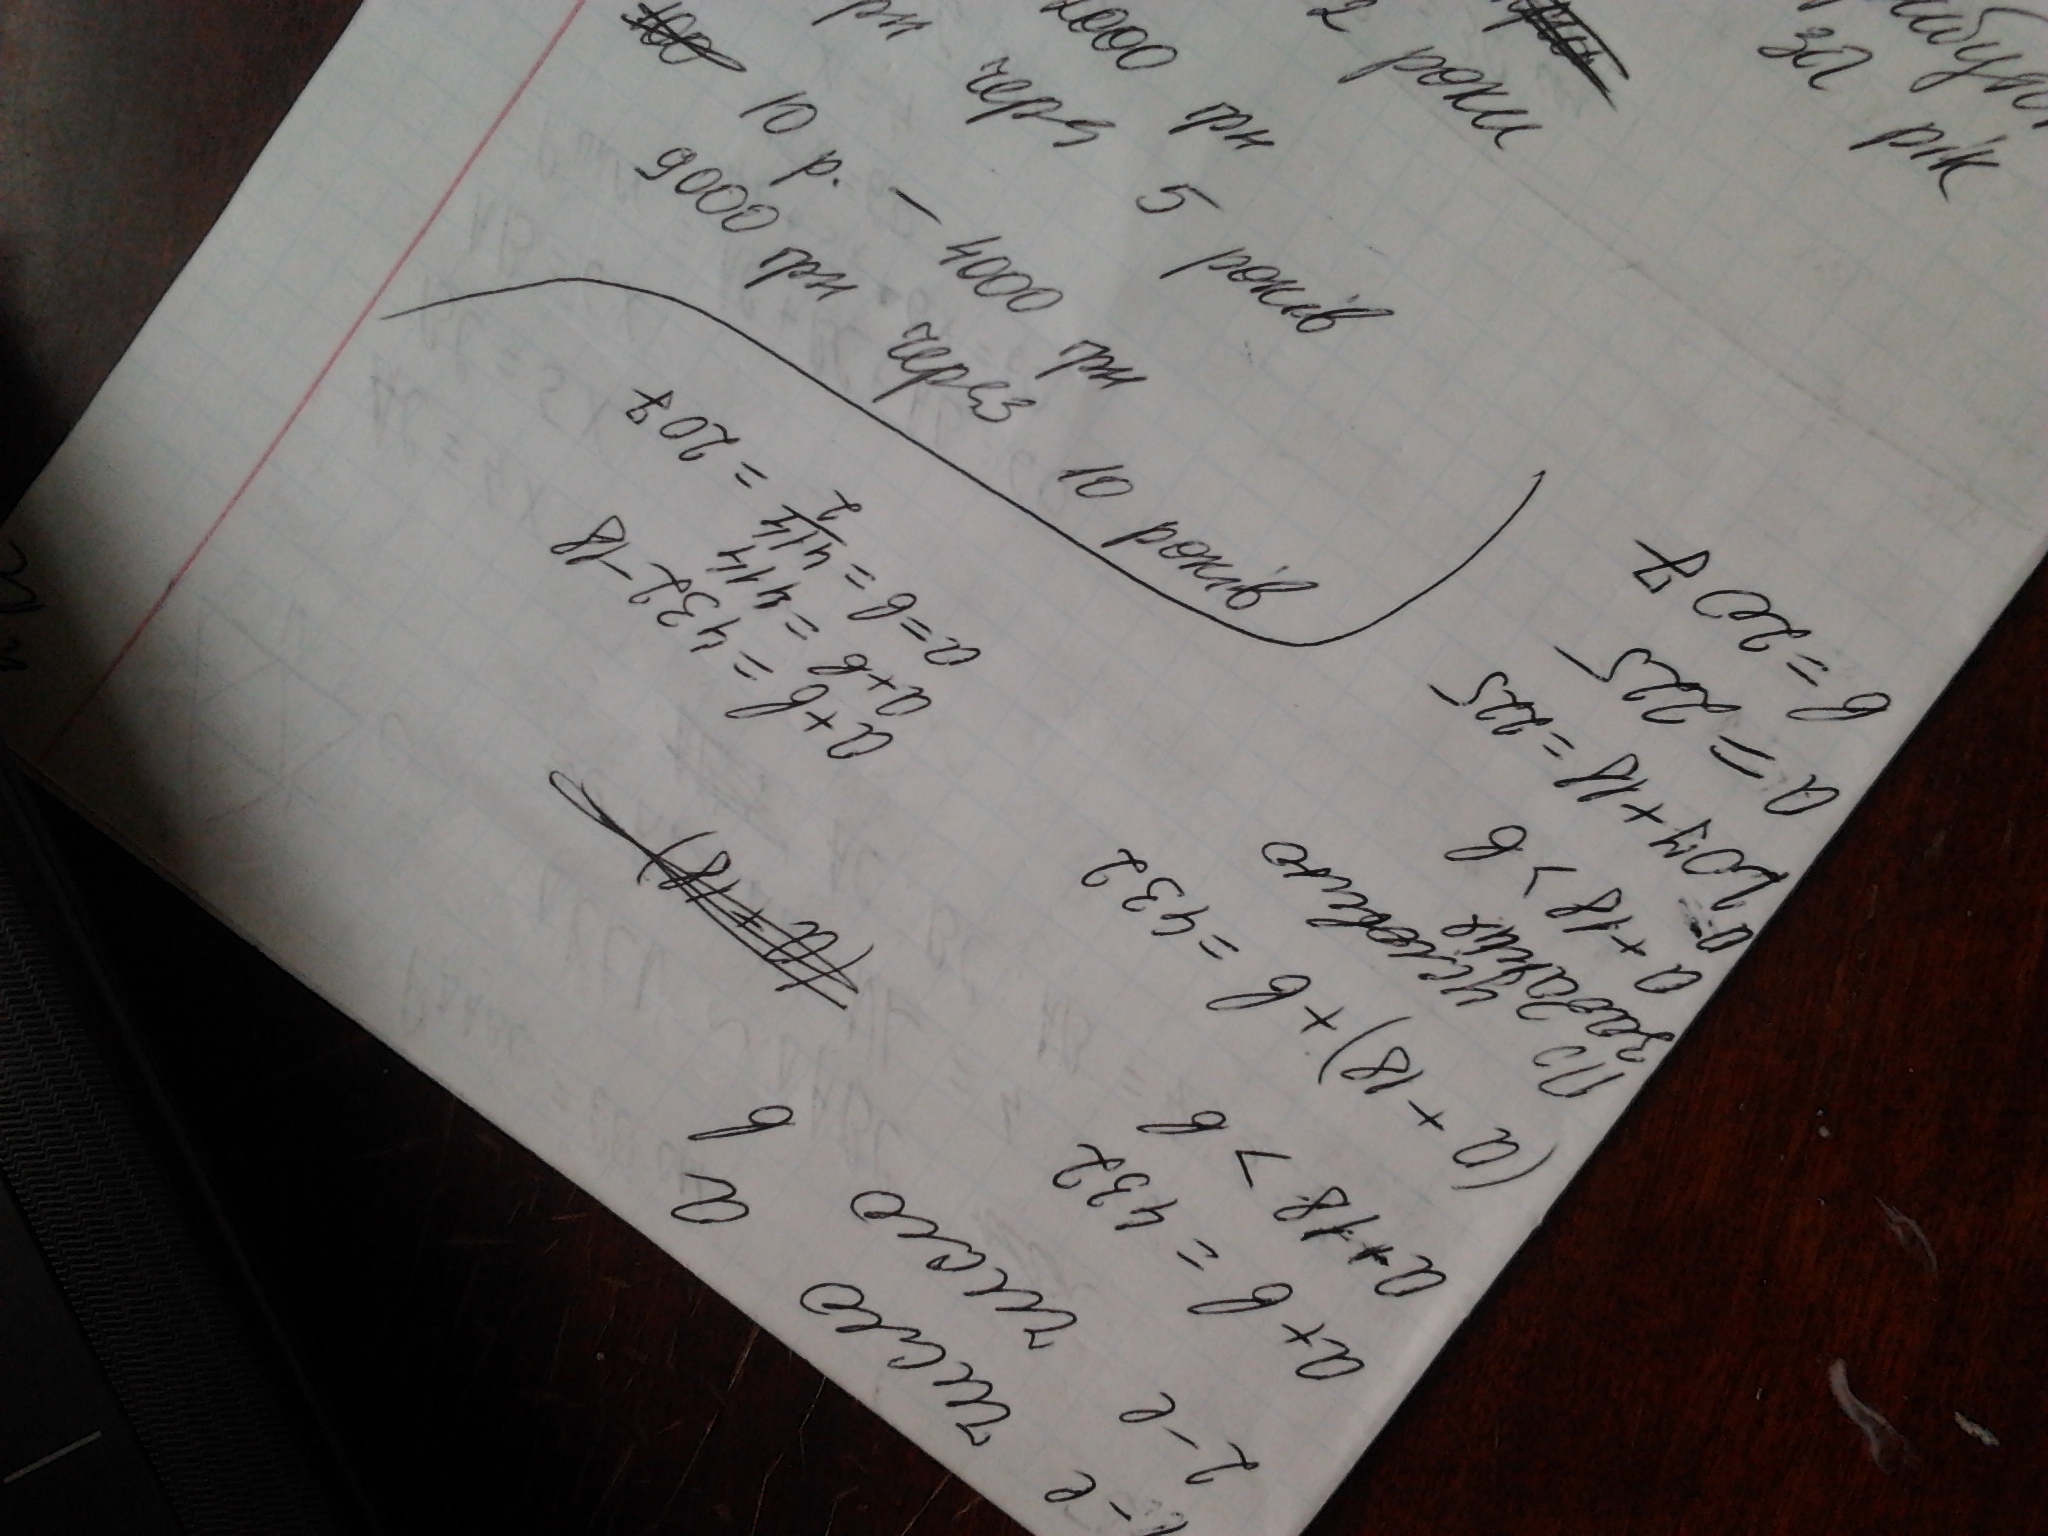 за рік
2 роки
2000 грн
грн через 5 років
10 р. - 4000 грн
5000 грн через 10 років
1-е число a
2-е число b
a+b = 432
a+18 > b
(a + 18) + b = 432
По условию
задачи
a+18 > b
207+18 = 225
a = 225
b = 207
a+b = 432-18
a+b = 414
a=b = 414/2 = 207